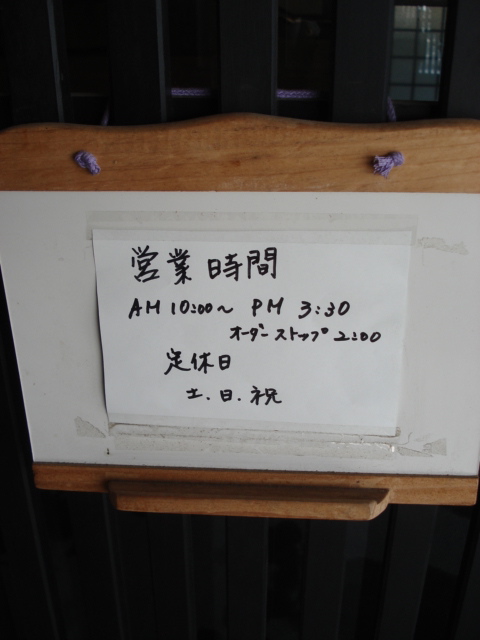 営業時間
AM 10:00~ PM 3:30
オーダーストップ 2:00
定休日
土.日.祝